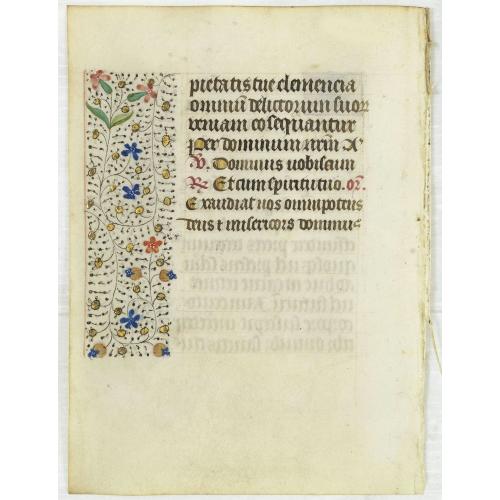 pietatis tue clemencia
omniū delictorum suor
veniam cōsequantur
Per dominum nrm̄ X
V. Dominus vobiscum
R. Et cum spiritu tuo. or̄.
Exaudiat nos omnipotens
deus ⁊ misericors dominus